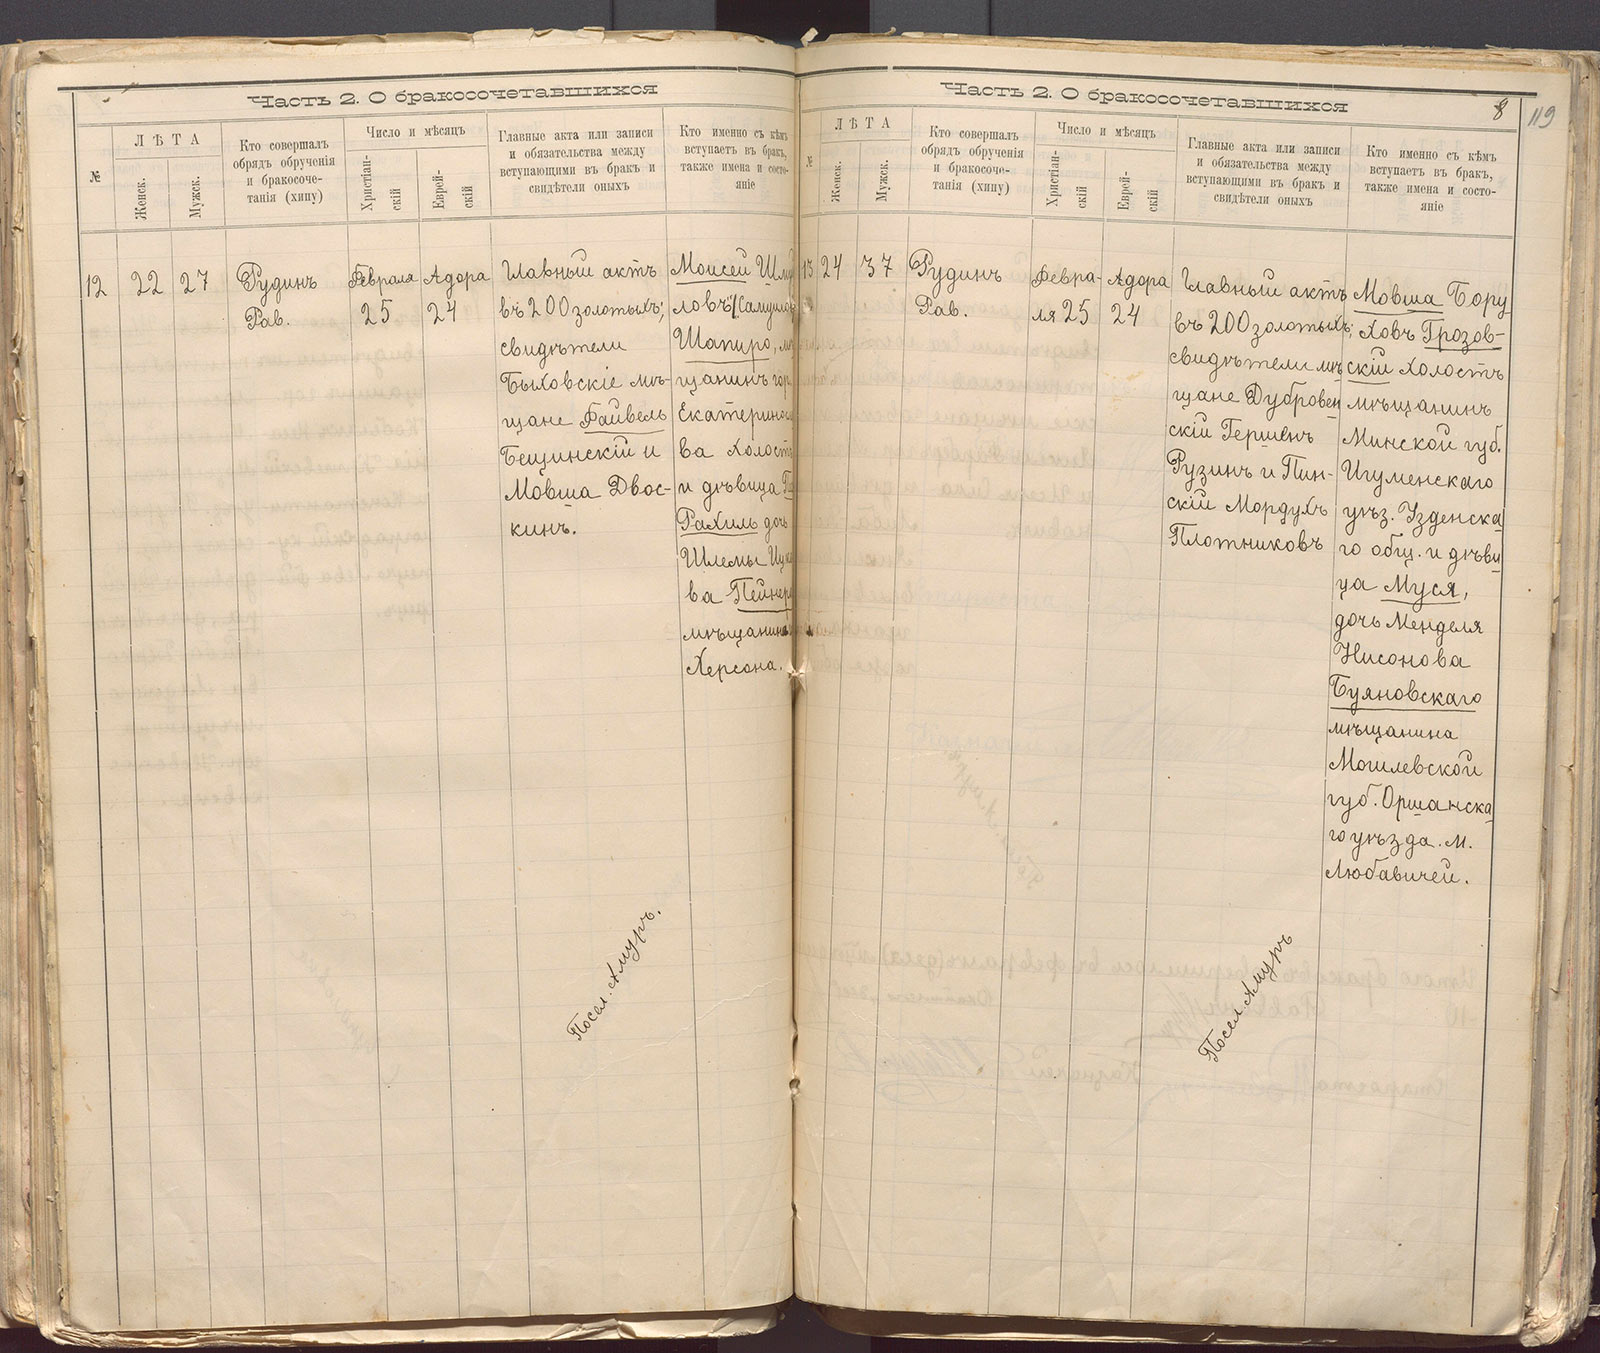 Часть 2. О бракосочетавшихся
№
ЛѢТА
Женск.
Мужск.
Кто совершалъ
обрядъ обрученія
и бракосоче-
танія (хипу)
Число и мѣсяцъ
Христіан-
скій
Еврей-
скій
Главные акта или записи
и обязательства между
вступающими въ бракъ и
свидѣтели оныхъ
Кто именно съ кѣмъ
вступаетъ въ бракъ,
также имена и состо-
яніе
12
22
27
Рудинъ
Рав.
Февраля
25
Адора
24
Главный актъ
въ 200 золотыхъ;
свидѣтели
Быховскіе мѣ-
щане Файвель
Бещинскій и
Мовша Двос-
кинъ.
Моисей
ловъ
Шапиро,
щанинъ гор.
ва
и дѣвица
Рахиль дочь
Шлемы
ва
мѣщанина
Херсона.
Посел. Амуръ.
Часть 2. О бракосочетавшихся
8
119
№
ЛѢТА
Женск.
Мужск.
Кто совершалъ
обрядъ обрученія
и бракосоче-
танія (хипу)
Число и мѣсяцъ
Христіан-
скій
Еврей-
скій
Главные акта или записи
и обязательства между
вступающими въ бракъ и
свидѣтели оныхъ
Кто именно съ кѣмъ
вступаетъ въ бракъ,
также имена и состо-
яніе
13
24
37
Рудинъ
Рав.
Февра-
ля 25
Адора
24
Главный актъ
въ 200 золотыхъ;
свидѣтели мѣ
щане Дубровен
скій Гершенъ
Рузинъ и Пин-
скій Мордухъ
Плотниковъ
Мовша Бору
ховъ Грозов-
скій Холостъ
мѣщанинъ
Минской губ.
Игуменскаго
уѣз. Узденска
го общ. и дѣви
ца Муся,
дочь Менделя
Нисонова
Буяновскаго
мѣщанина
Могилевской
губ. Оршанска
го уѣзда. м.
Любавичей.
Посел. Амуръ